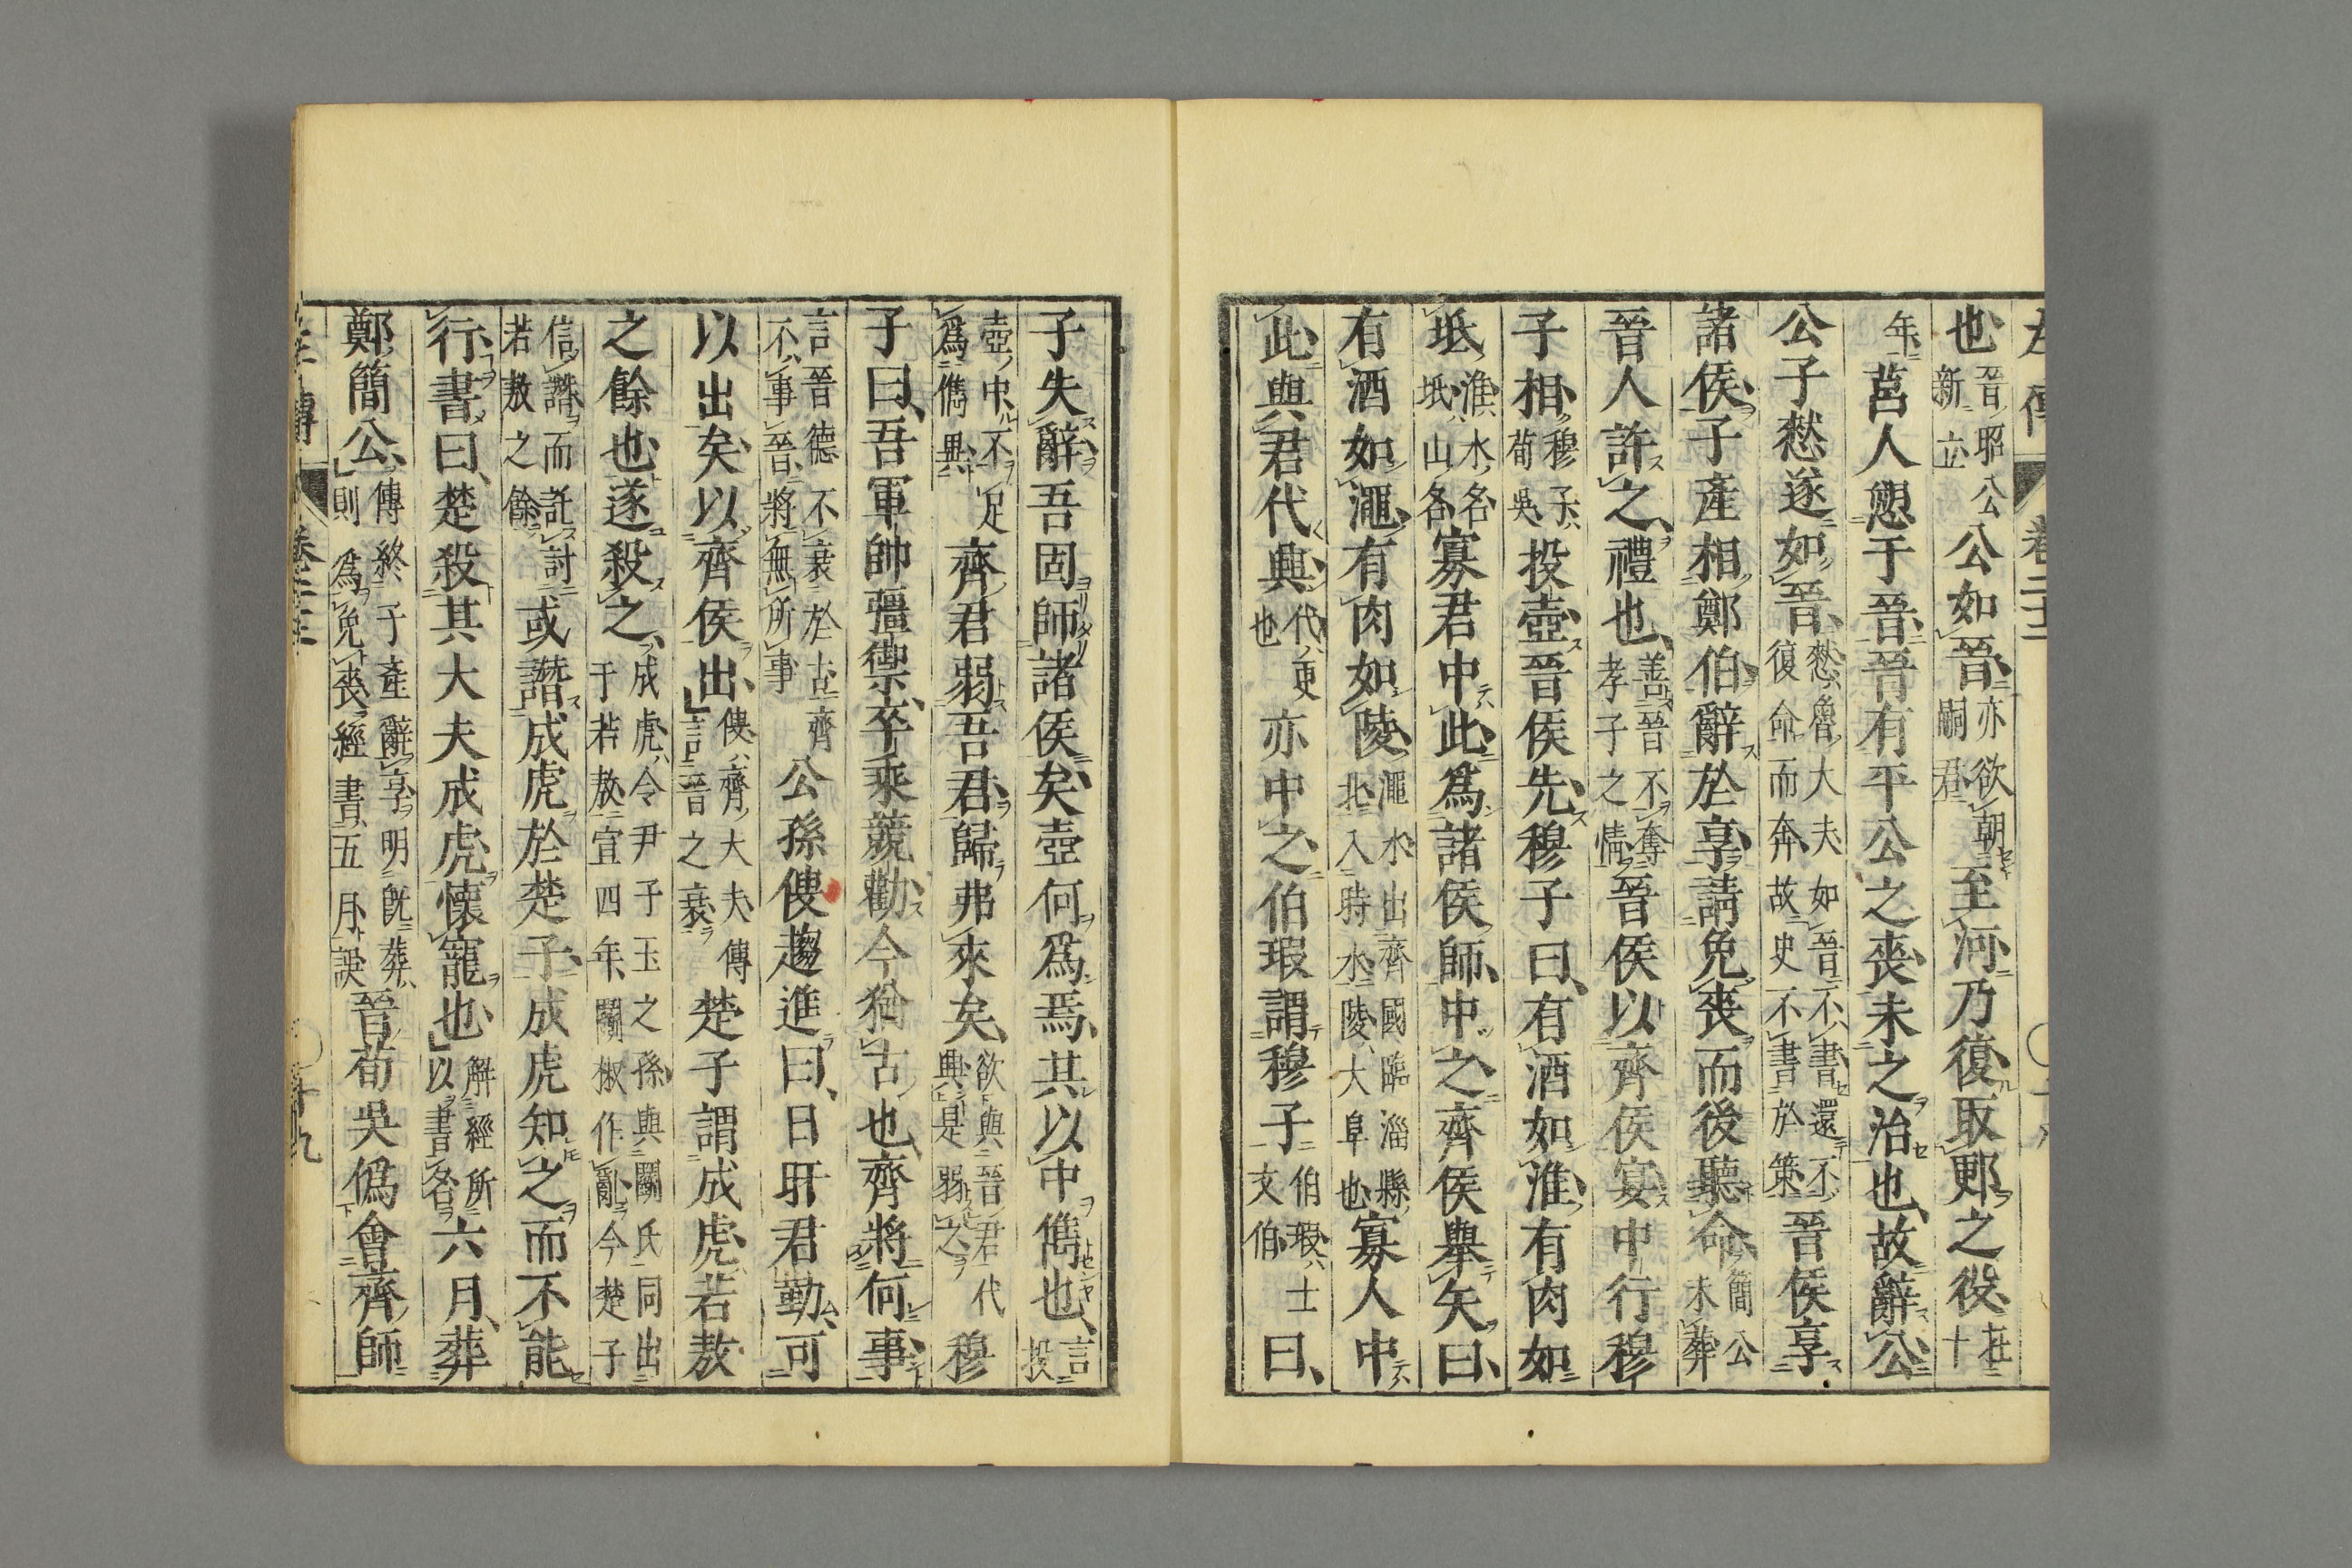 左傳 卷二十二
也晉昭公新立公如晉亦欲朝嗣君至河乃復取郠之役在十
年莒人愬于晉晉有平公之喪未之治也故辭公
公子憖遂如晉憖魯大夫如晉不書還不復命而奔故史不書於策晉侯享
諸侯子產相鄭伯辭於享請免喪而後聽命簡公未葬
晉人許之禮也善晉不奪孝子之情晉侯以齊侯宴中行穆
子相穆子荀吳投壺晉侯先穆子曰有酒如淮有肉如
坻淮水名坻山名寡君中此爲諸侯師中之齊侯舉矢曰
有酒如澠有肉如陵澠水出齊國臨淄縣北入時水陵大阜也寡人中
此與君代興代更也亦中之伯瑕謂穆子伯瑕士文伯曰
子失辭吾固師諸侯矣壺何爲焉其以中儁也言投
壺中不足爲儁異齊君弱吾君歸弗來矣欲與晉君代興是弱之穆
子曰吾軍帥彊禦卒乘競勸今猶古也齊將何事
言晉德不衰於古齊不事晉將無所事公孫傁趨進曰日旰君勤可
以出矣以齊侯出傁齊大夫傳言晉之衰楚子謂成虎若敖
之餘也遂殺之成虎令尹子玉之孫與鬭氏同出于若敖宣四年鬭椒作亂今楚子
信譖而託討若敖之餘或譖成虎於楚子成虎知之而不能
行書曰楚殺其大夫成虎懷寵也解經所以書名六月葬
鄭簡公傳終子產辭享明既葬則爲免喪經書五月誤晉荀吳僞會齊師
左傳 卷二十二 十九